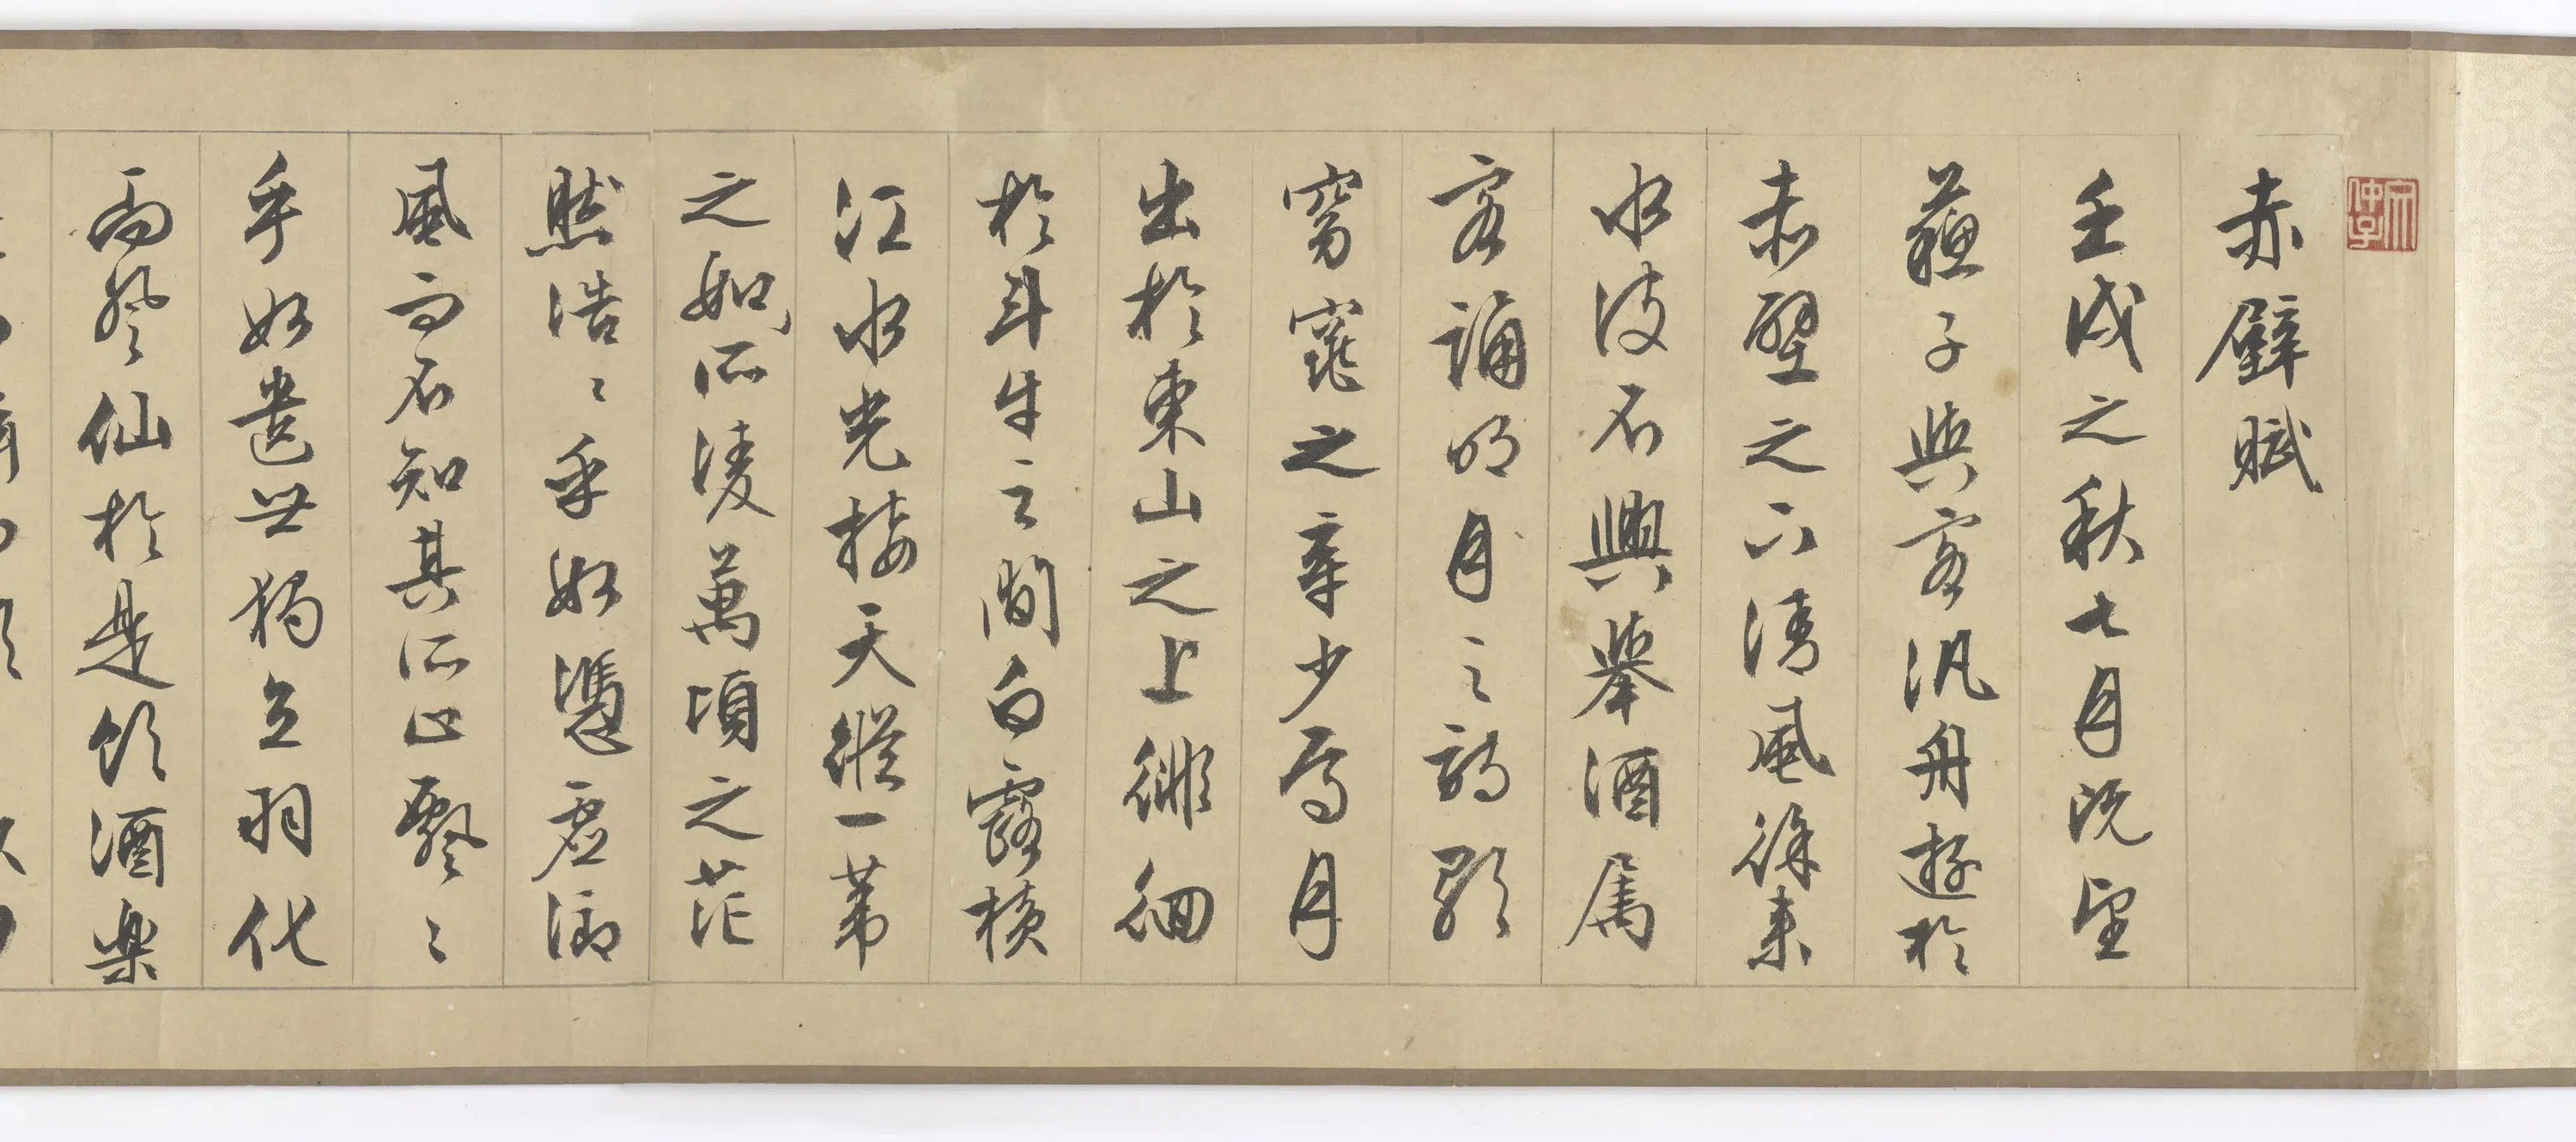 赤壁賦
壬戌之秋七月既望
蘇子與客汎舟遊於
赤壁之下清風徐来
水波不興舉酒属
客誦明月之詩歌
窈窕之章少焉月
出於東山之上徘徊
於斗牛之間白露横
江水光接天縱一葦
之如所淩萬頃之茫
然浩〻乎如憑虛御
風而不知其所止飄〻
乎如遺世獨立羽化
而登仙於是飲酒楽